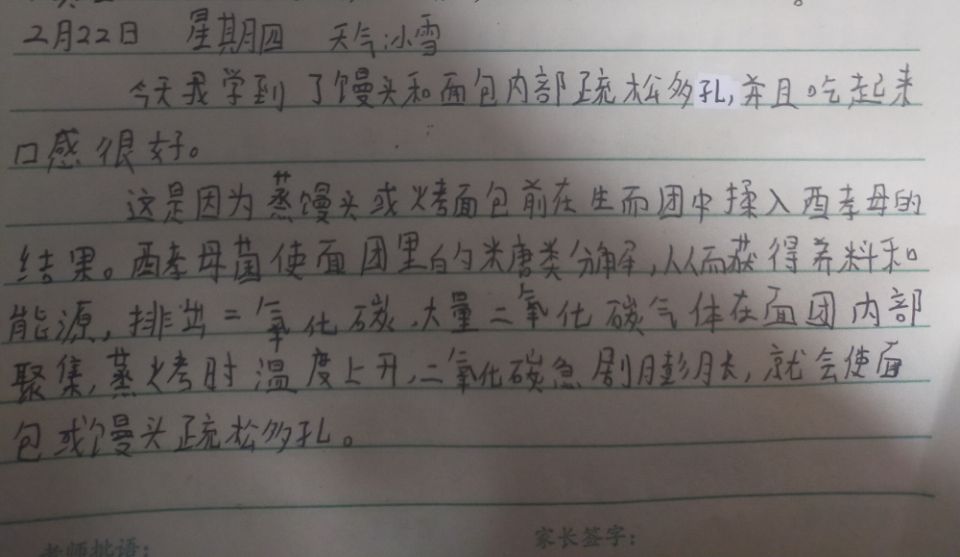 2月22日 星期四 天气:冰雪
今天我学到了馒头和面包内部疏松多孔,并且吃起来
口感很好。
这是因为蒸馒头或烤面包前在生面团中揉入酉孝母的
结果。酉孝母菌使面团里的米唐类分解,从而获得养料和
能源,排出二氧化碳,大量二氧化碳气体在面团内部
聚集,蒸烤时温度上升,二氧化碳急剧膨胀,就会使面
包或馒头疏松多孔。
老师批语:
家长签字: